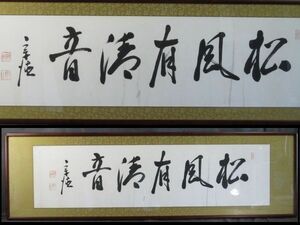 松風有清音
松風有清音